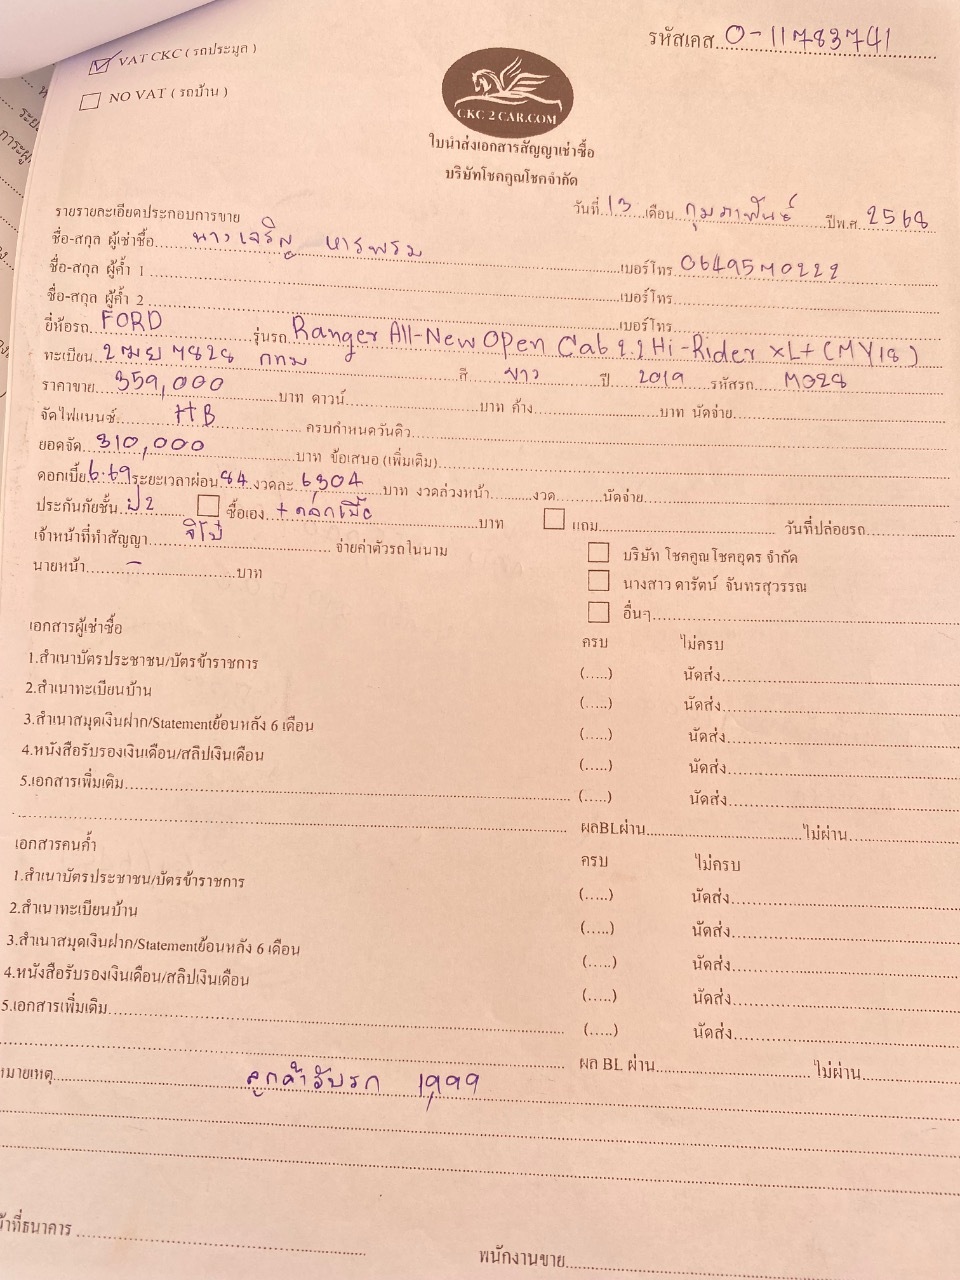 ☑ VAT CKC ( รถประมูล )
รหัสเคส 0-11783741
☐ NO VAT ( รถบ้าน )
CKC 2 CAR.COM
ใบนำส่งเอกสารสัญญาเช่าซื้อ
บริษัทโชคคูณโชคจำกัด
วันที่ 13 เดือน กุมภาพันธ์ ปีพ.ศ 2568
รายรายละเอียดประกอบการขาย
ชื่อ-สกุล ผู้เช่าซื้อ นางเจริญ หารพรม เบอร์โทร
ชื่อ-สกุล ผู้ค้ำ 1 เบอร์โทร
ชื่อ-สกุล ผู้ค้ำ 2 เบอร์โทร
ยี่ห้อรถ FORD รุ่นรถ Ranger All-New Open Cab 2.2 Hi-Rider XL+ (MY18)
ทะเบียน 7828 กทม สี ขาว ปี 2019 รหัสรถ M028
ราคาขาย 359,000 บาท ดาวน์ บาท ค้าง บาท นัดจ่าย
จัดไฟแนนซ์ HB ครบกำหนดวันคิว
ยอดจัด 310,000 บาท ข้อเสนอ (เพิ่มเติม)
ดอกเบี้ย 6.69 ระยะเวลาผ่อน 84 งวดละ 6304 บาท งวดล่วงหน้า งวด นัดจ่าย
ประกันภัยชั้น ป2 ☐ ซื้อเอง + ดอกเบี้ย บาท ☐ แถม วันที่ปล่อยรถ
เจ้าหน้าที่ทำสัญญา จิโป่ จ่ายค่าตัวรถในนาม ☐ บริษัท โชคคูณโชคอุดร จำกัด
นายหน้า - บาท ☐ นางสาว ดารัตน์ จันทรสุวรรณ
☐ อื่นๆ
เอกสารผู้เช่าซื้อ ครบ ไม่ครบ
1.สำเนาบัตรประชาชน/บัตรข้าราชการ (.....) นัดส่ง
2.สำเนาทะเบียนบ้าน (.....) นัดส่ง
3.สำเนาสมุดเงินฝาก/Statementย้อนหลัง 6 เดือน (.....) นัดส่ง
4.หนังสือรับรองเงินเดือน/สลิปเงินเดือน (.....) นัดส่ง
5.เอกสารเพิ่มเติม (.....) นัดส่ง
ผลBLผ่าน ไม่ผ่าน
เอกสารคนค้ำ ครบ ไม่ครบ
1.สำเนาบัตรประชาชน/บัตรข้าราชการ (.....) นัดส่ง
2.สำเนาทะเบียนบ้าน (.....) นัดส่ง
3.สำเนาสมุดเงินฝาก/Statementย้อนหลัง 6 เดือน (.....) นัดส่ง
4.หนังสือรับรองเงินเดือน/สลิปเงินเดือน (.....) นัดส่ง
5.เอกสารเพิ่มเติม (.....) นัดส่ง
ผล BL ผ่าน ไม่ผ่าน
หมายเหตุ ลูกค้ารับรถ 1,999
น้าที่ธนาคาร
พนักงานขาย